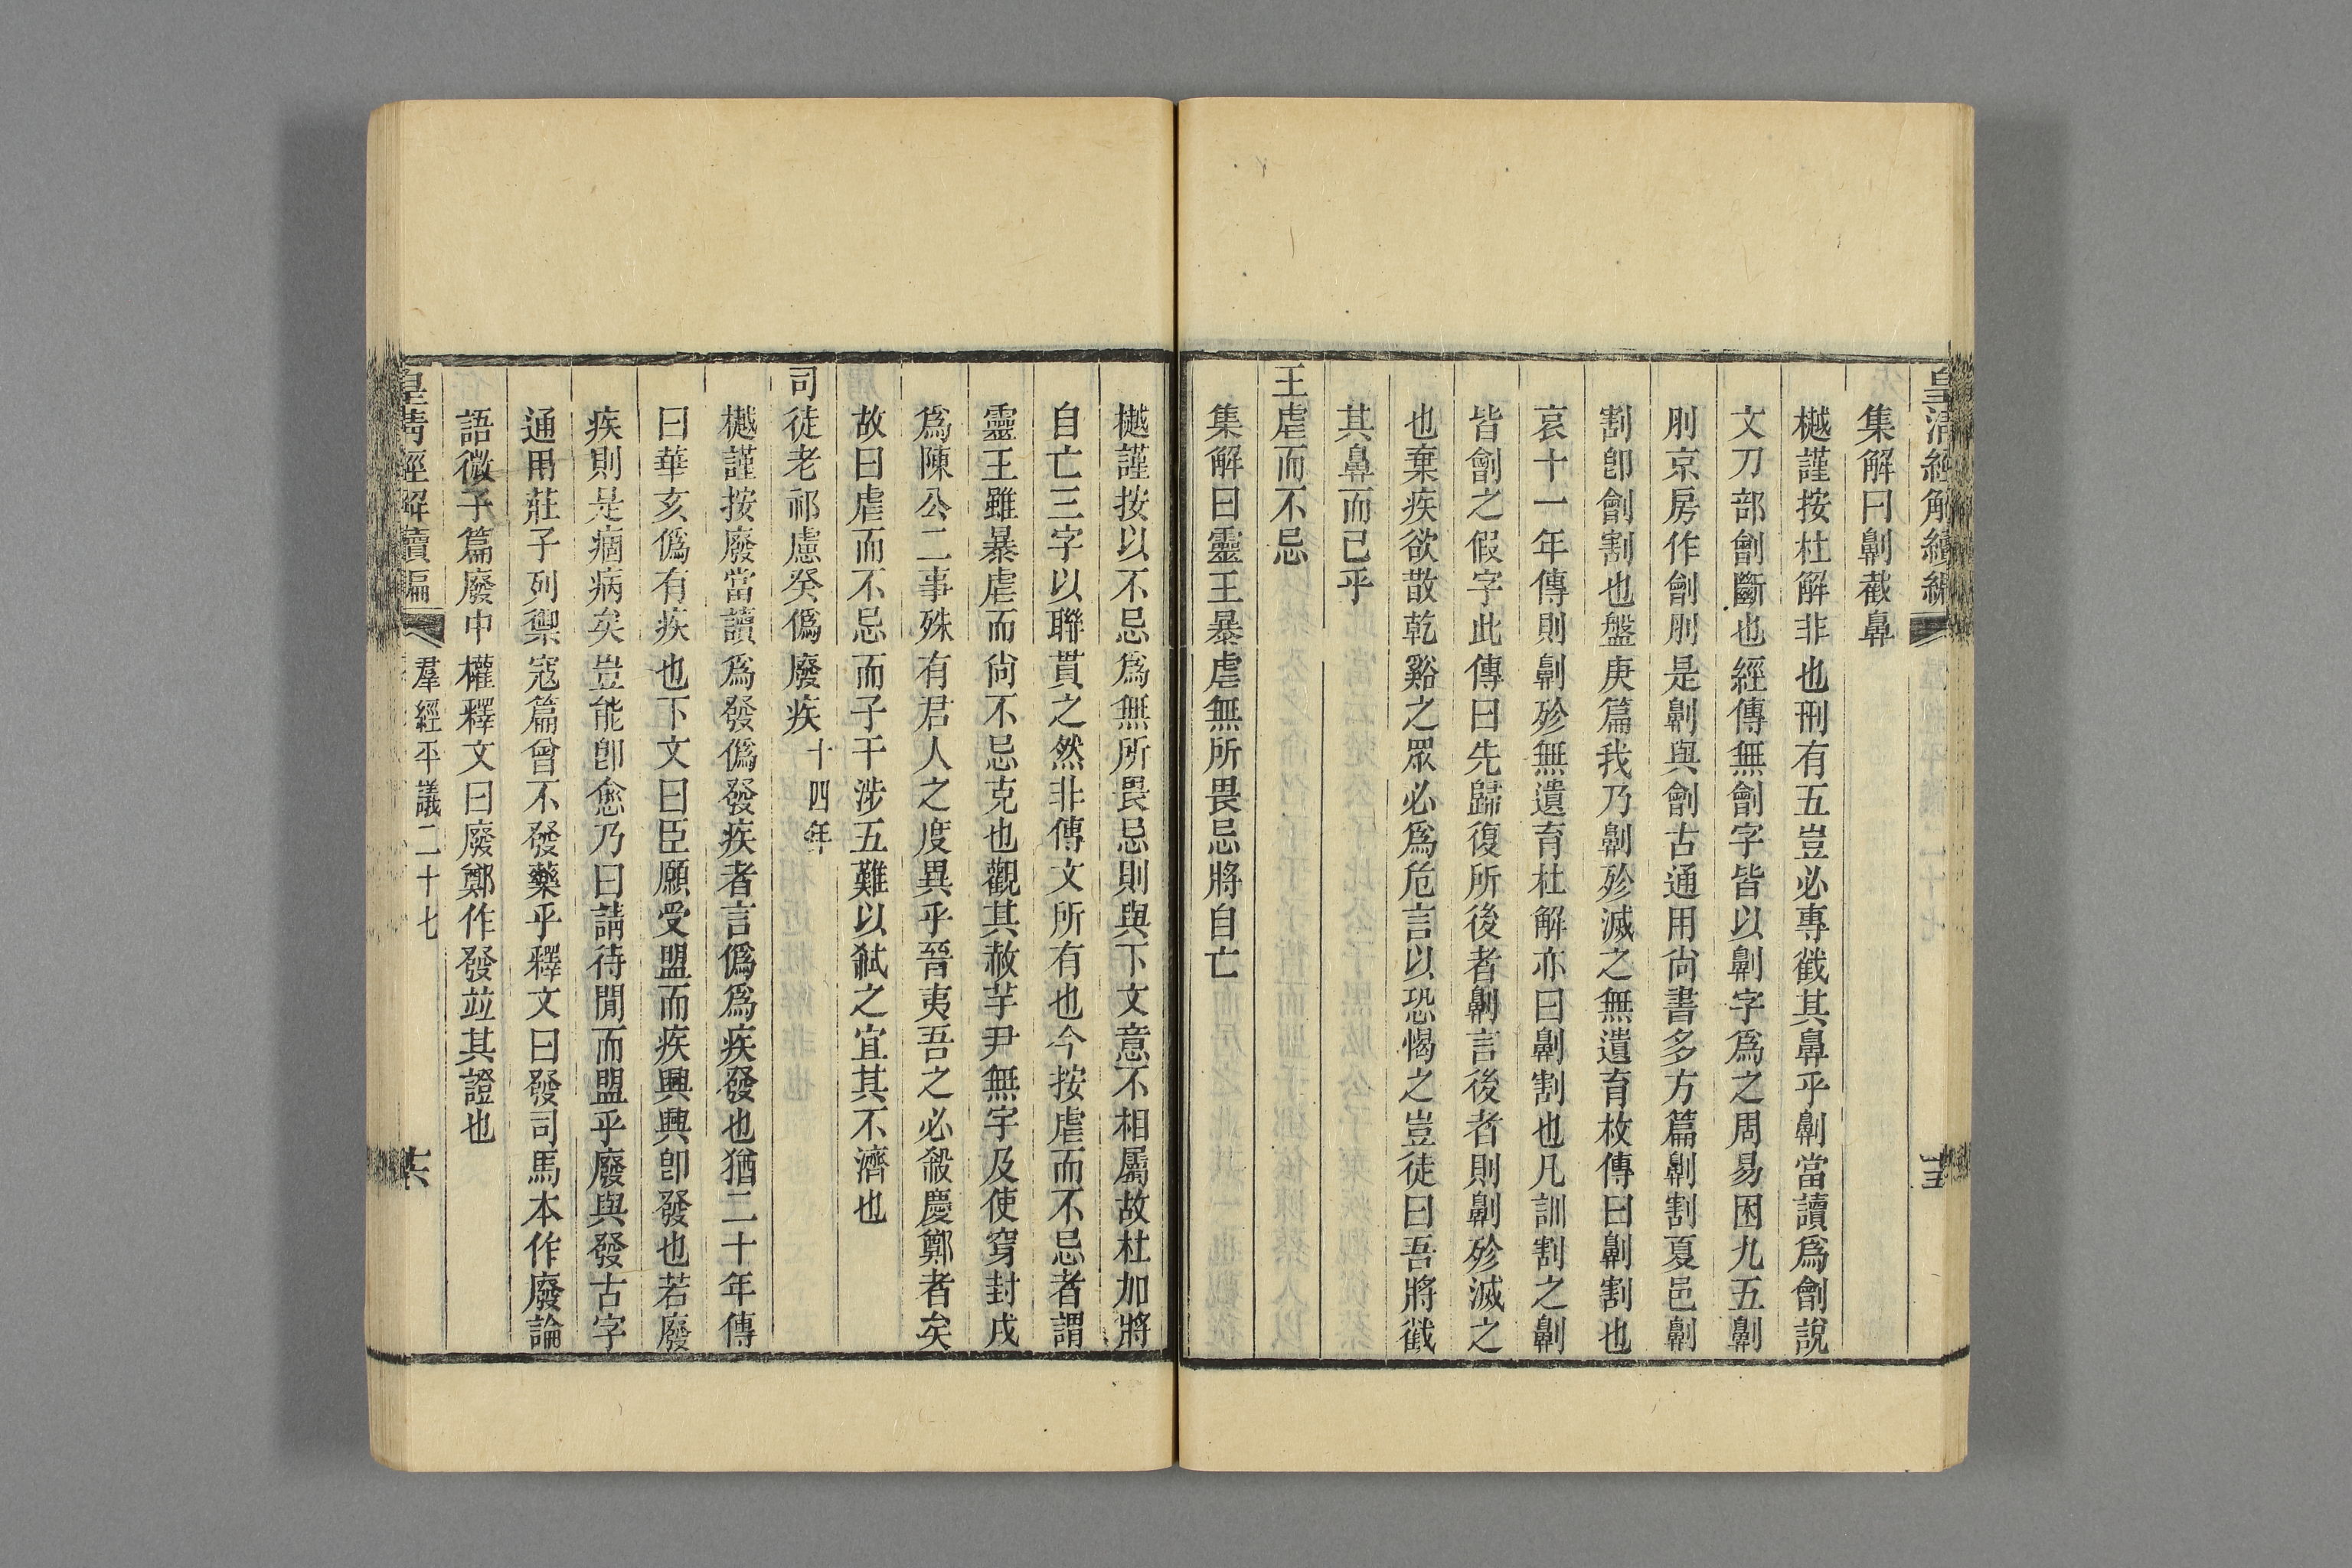 皇清經解續編
集解曰劓截鼻
樾謹按杜解非也刑有五豈必專截其鼻乎劓當讀爲劊說
文刀部劊斷也經傳無劊字皆以劓字爲之周易困九五劓
刖京房作劊刖是劓與劊古通用尙書多方篇劓割夏邑劓
割卽劊割也盤庚篇我乃劓殄滅之無遺育枚傳曰劓割也
哀十一年傳則劓殄無遺育杜解亦曰劓割也凡訓割之劓
皆劊之假字此傳曰先歸復所後者劓言後者則劓殄滅之
也棄疾欲散乾谿之眾必爲危言以恐愒之豈徒曰吾將截
其鼻而已乎
王虐而不忌
集解曰靈王暴虐無所畏忌將自亡
樾謹按以不忌爲無所畏忌則與下文意不相屬故杜加將
自亡三字以聯貫之然非傳文所有也今按虐而不忌者謂
靈王雖暴虐而尙不忌克也觀其赦芋尹無宇及使穿封戌
爲陳公二事殊有君人之度異乎晉夷吾之必殺慶鄭者矣
故曰虐而不忌而子干涉五難以弒之宜其不濟也
司徒老祁慮癸僞廢疾十四年
樾謹按廢當讀爲發僞發疾者言僞爲疾發也猶二十年傳
曰華亥僞有疾也下文曰臣願受盟而疾興興卽發也若廢
疾則是痼病矣豈能卽愈乃曰請待閒而盟乎廢與發古字
通用莊子列禦寇篇曾不發藥乎釋文曰發司馬本作廢論
語微子篇廢中權釋文曰廢鄭作發竝其證也
皇清經解續編
羣經平議二十七